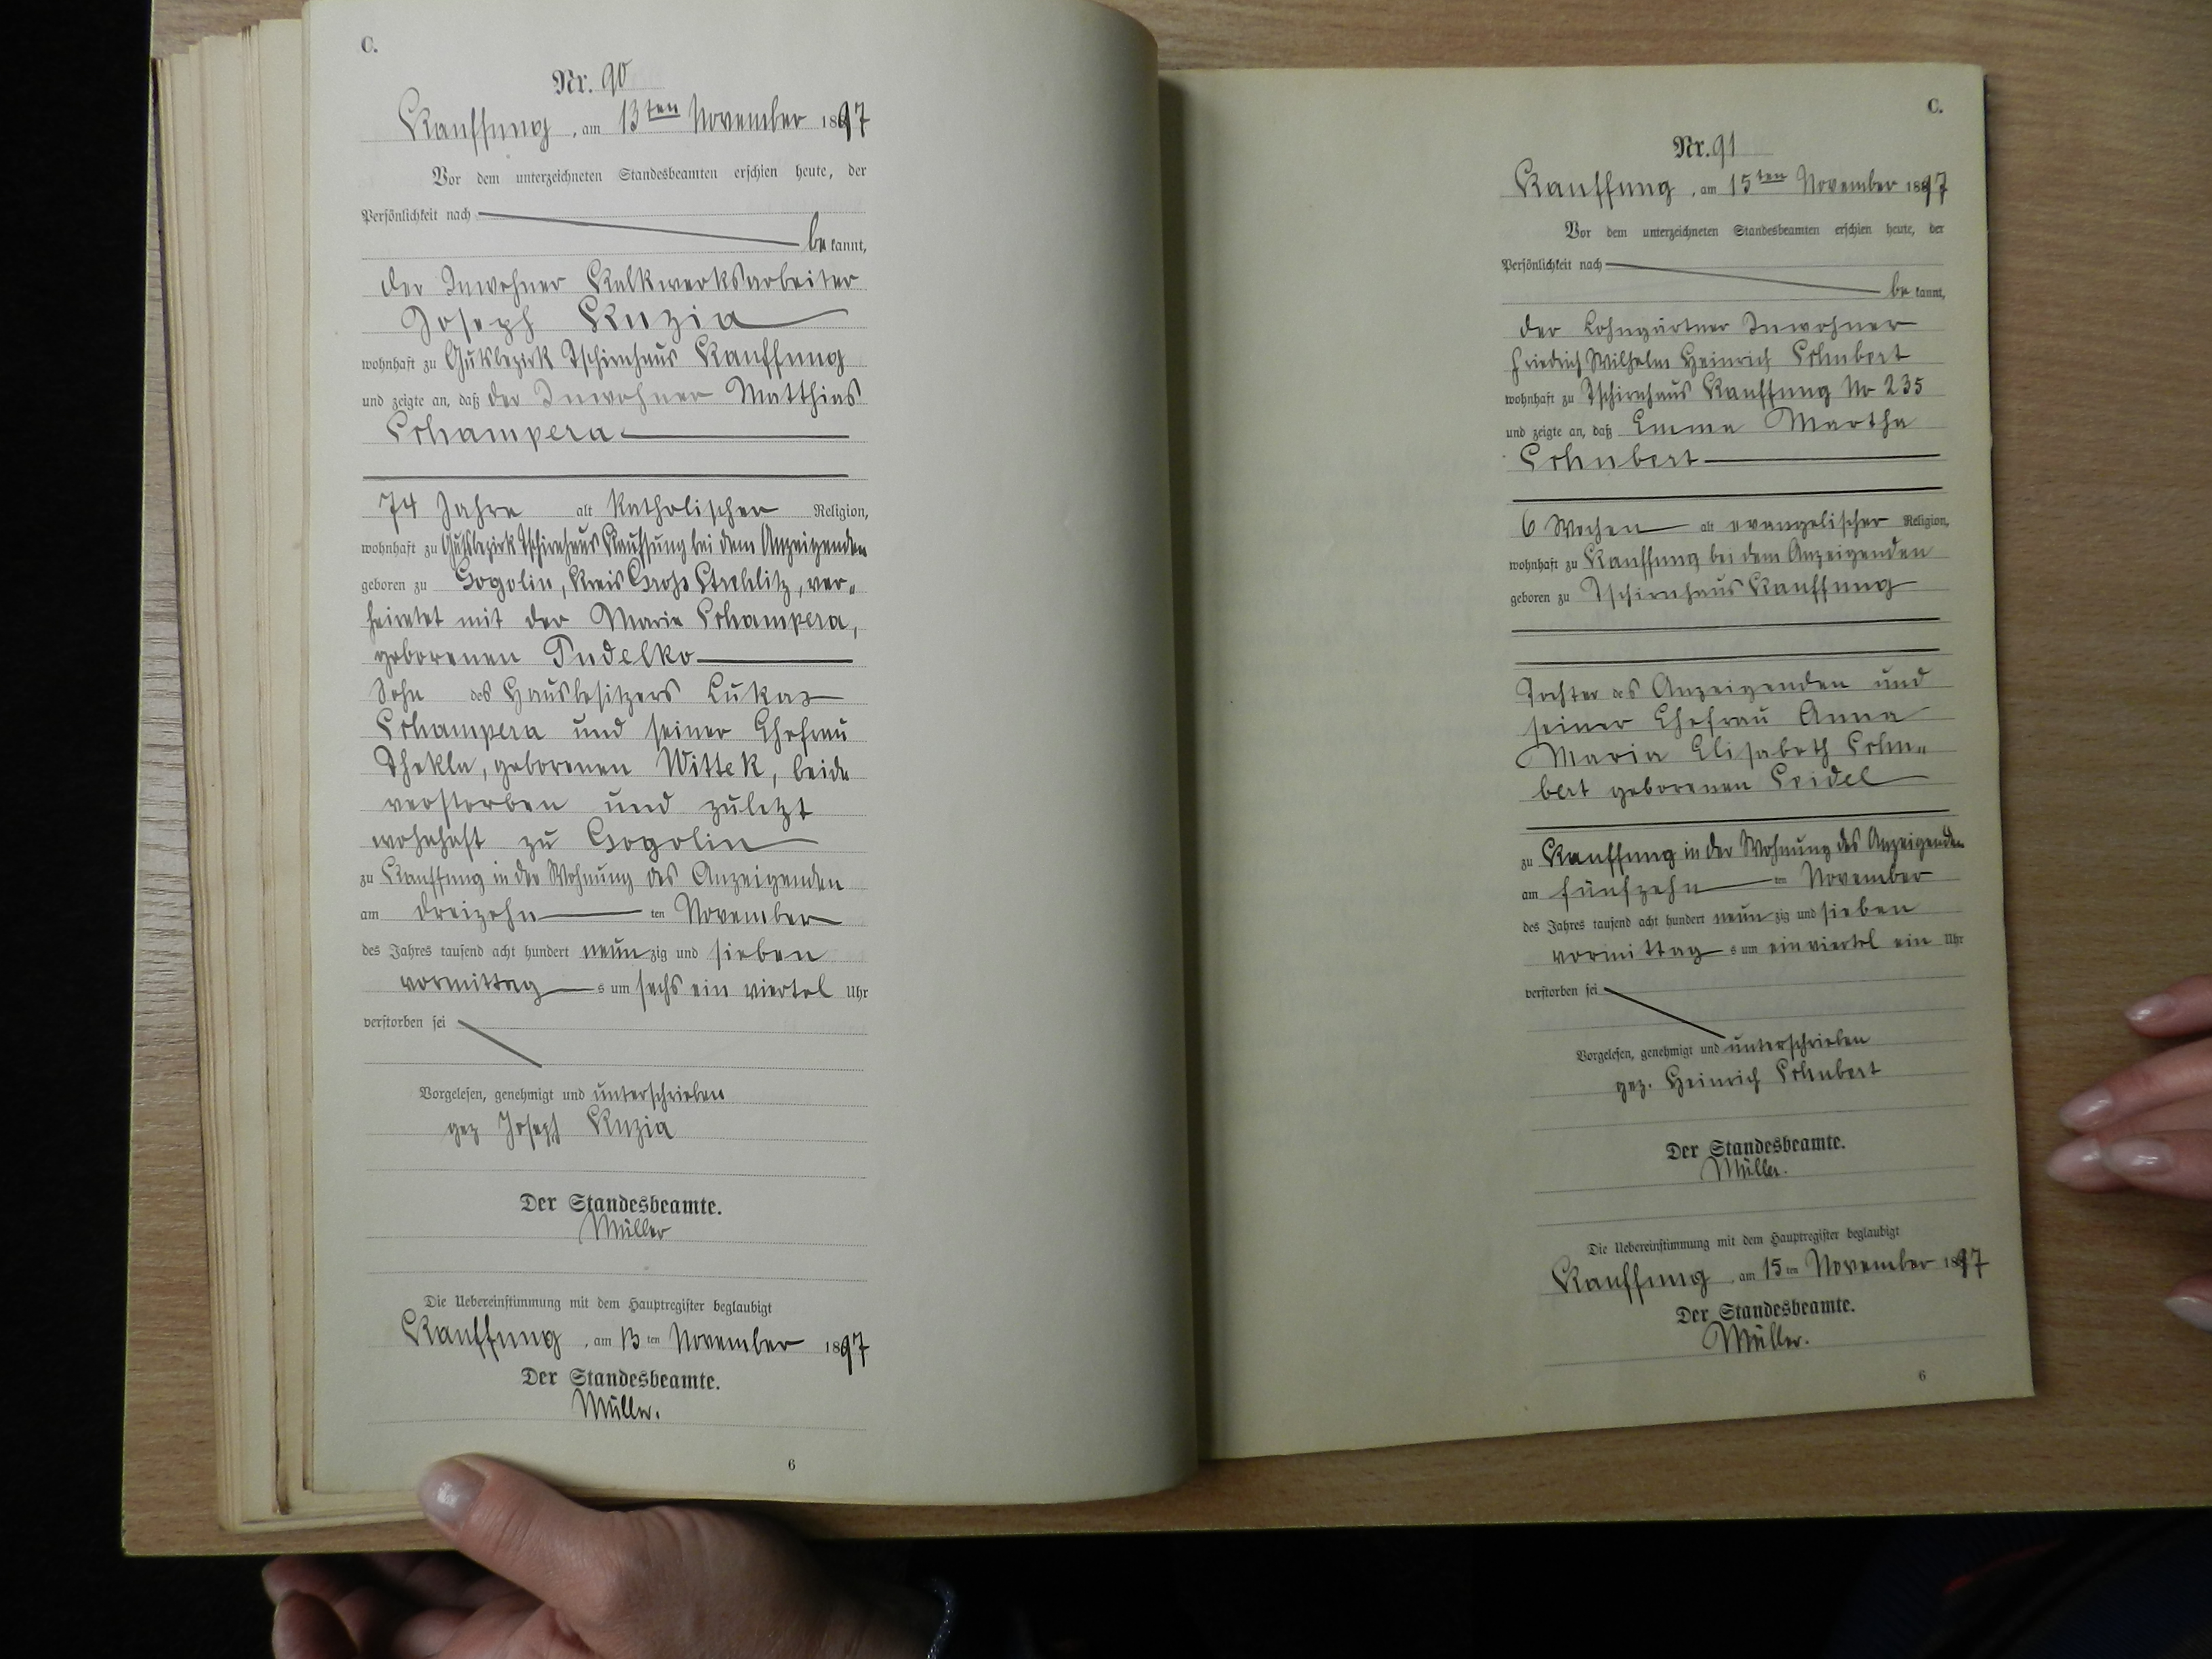 C.
Nr. 90
Kauffung, am 13ten November 1897
Vor dem unterzeichneten Standesbeamten erschien heute, der
Persönlichkeit nach
bekannt,
der Inwohner Kalkwerksarbeiter
Joseph Kuzia
wohnhaft zu Gutsbezirk Tschirnhaus Kauffung
und zeigte an, daß der Inwohner Matthias
Schampera
74 Jahre alt katholischer Religion,
wohnhaft zu Gutsbezirk Tschirnhaus Kauffung bei dem Anzeigenden
geboren zu Gogolin, Kreis Groß Strehlitz, ver-
heiratet mit der Marie Schampera,
geborenen Pudelko
Sohn des Hausbesitzers Lukas
Schampera und seiner Ehefrau
Thekla, geborenen Wittek, beide
verstorben und zuletzt
wohnhaft zu Gogolin
zu Kauffung in der Wohnung des Anzeigenden
am dreizehnten November
des Jahres tausend acht hundert neunzig und sieben
vormittags um sechs ein viertel Uhr
verstorben sei
Vorgelesen, genehmigt und unterschrieben
gez Joseph Kuzia
Der Standesbeamte.
Müller
Die Uebereinstimmung mit dem Hauptregister beglaubigt
Kauffung, am 13ten November 1897
Der Standesbeamte.
Müller.
6
C.
Nr. 91
Kauffung, am 15ten November 1897
Vor dem unterzeichneten Standesbeamten erschien heute, der
Persönlichkeit nach
bekannt,
der Lohngärtner Inwohner
Friedrich Wilhelm Heinrich Schubert
wohnhaft zu Tschirnhaus Kauffung No 235
und zeigte an, daß Emma Martha
Schubert
6 Wochen alt evangelischer Religion,
wohnhaft zu Kauffung bei dem Anzeigenden
geboren zu Tschirnhaus Kauffung
Tochter des Anzeigenden und
seiner Ehefrau Anna
Maria Elisabeth Schu-
bert geborenen Seidel
zu Kauffung in der Wohnung des Anzeigenden
am fünfzehnten November
des Jahres tausend acht hundert neunzig und sieben
vormittags um ein viertel ein Uhr
verstorben sei
Vorgelesen, genehmigt und unterschrieben
gez. Heinrich Schubert
Der Standesbeamte.
Müller.
Die Uebereinstimmung mit dem Hauptregister beglaubigt
Kauffung, am 15ten November 1897
Der Standesbeamte.
Müller.
6